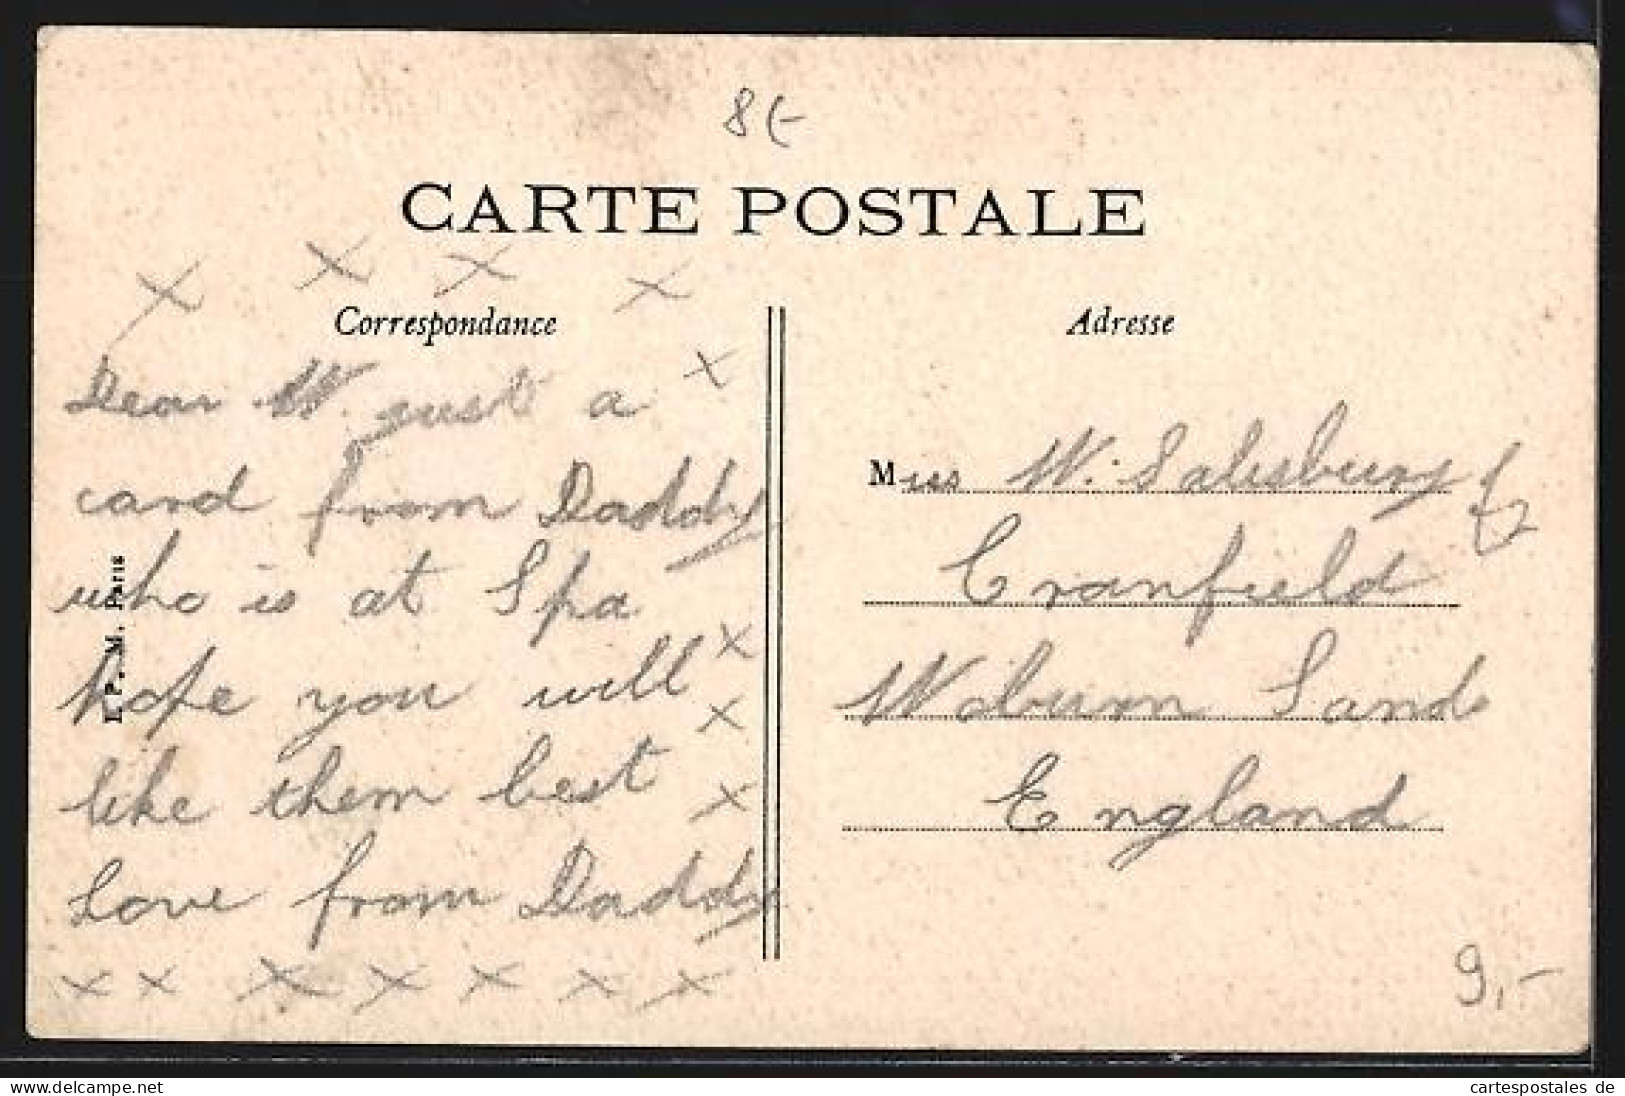 8(-
CARTE POSTALE
x x x x
Correspondance
x
Dear W. just a
card from Daddy
who is at Spa
hope you will
x
x
like them best
x
Love from Daddy
x x x x x x x
P. M. Paris
Adresse
Miss W. Salisbury
Cranfield
Woburn Sands
England
9,-
cartespostales de